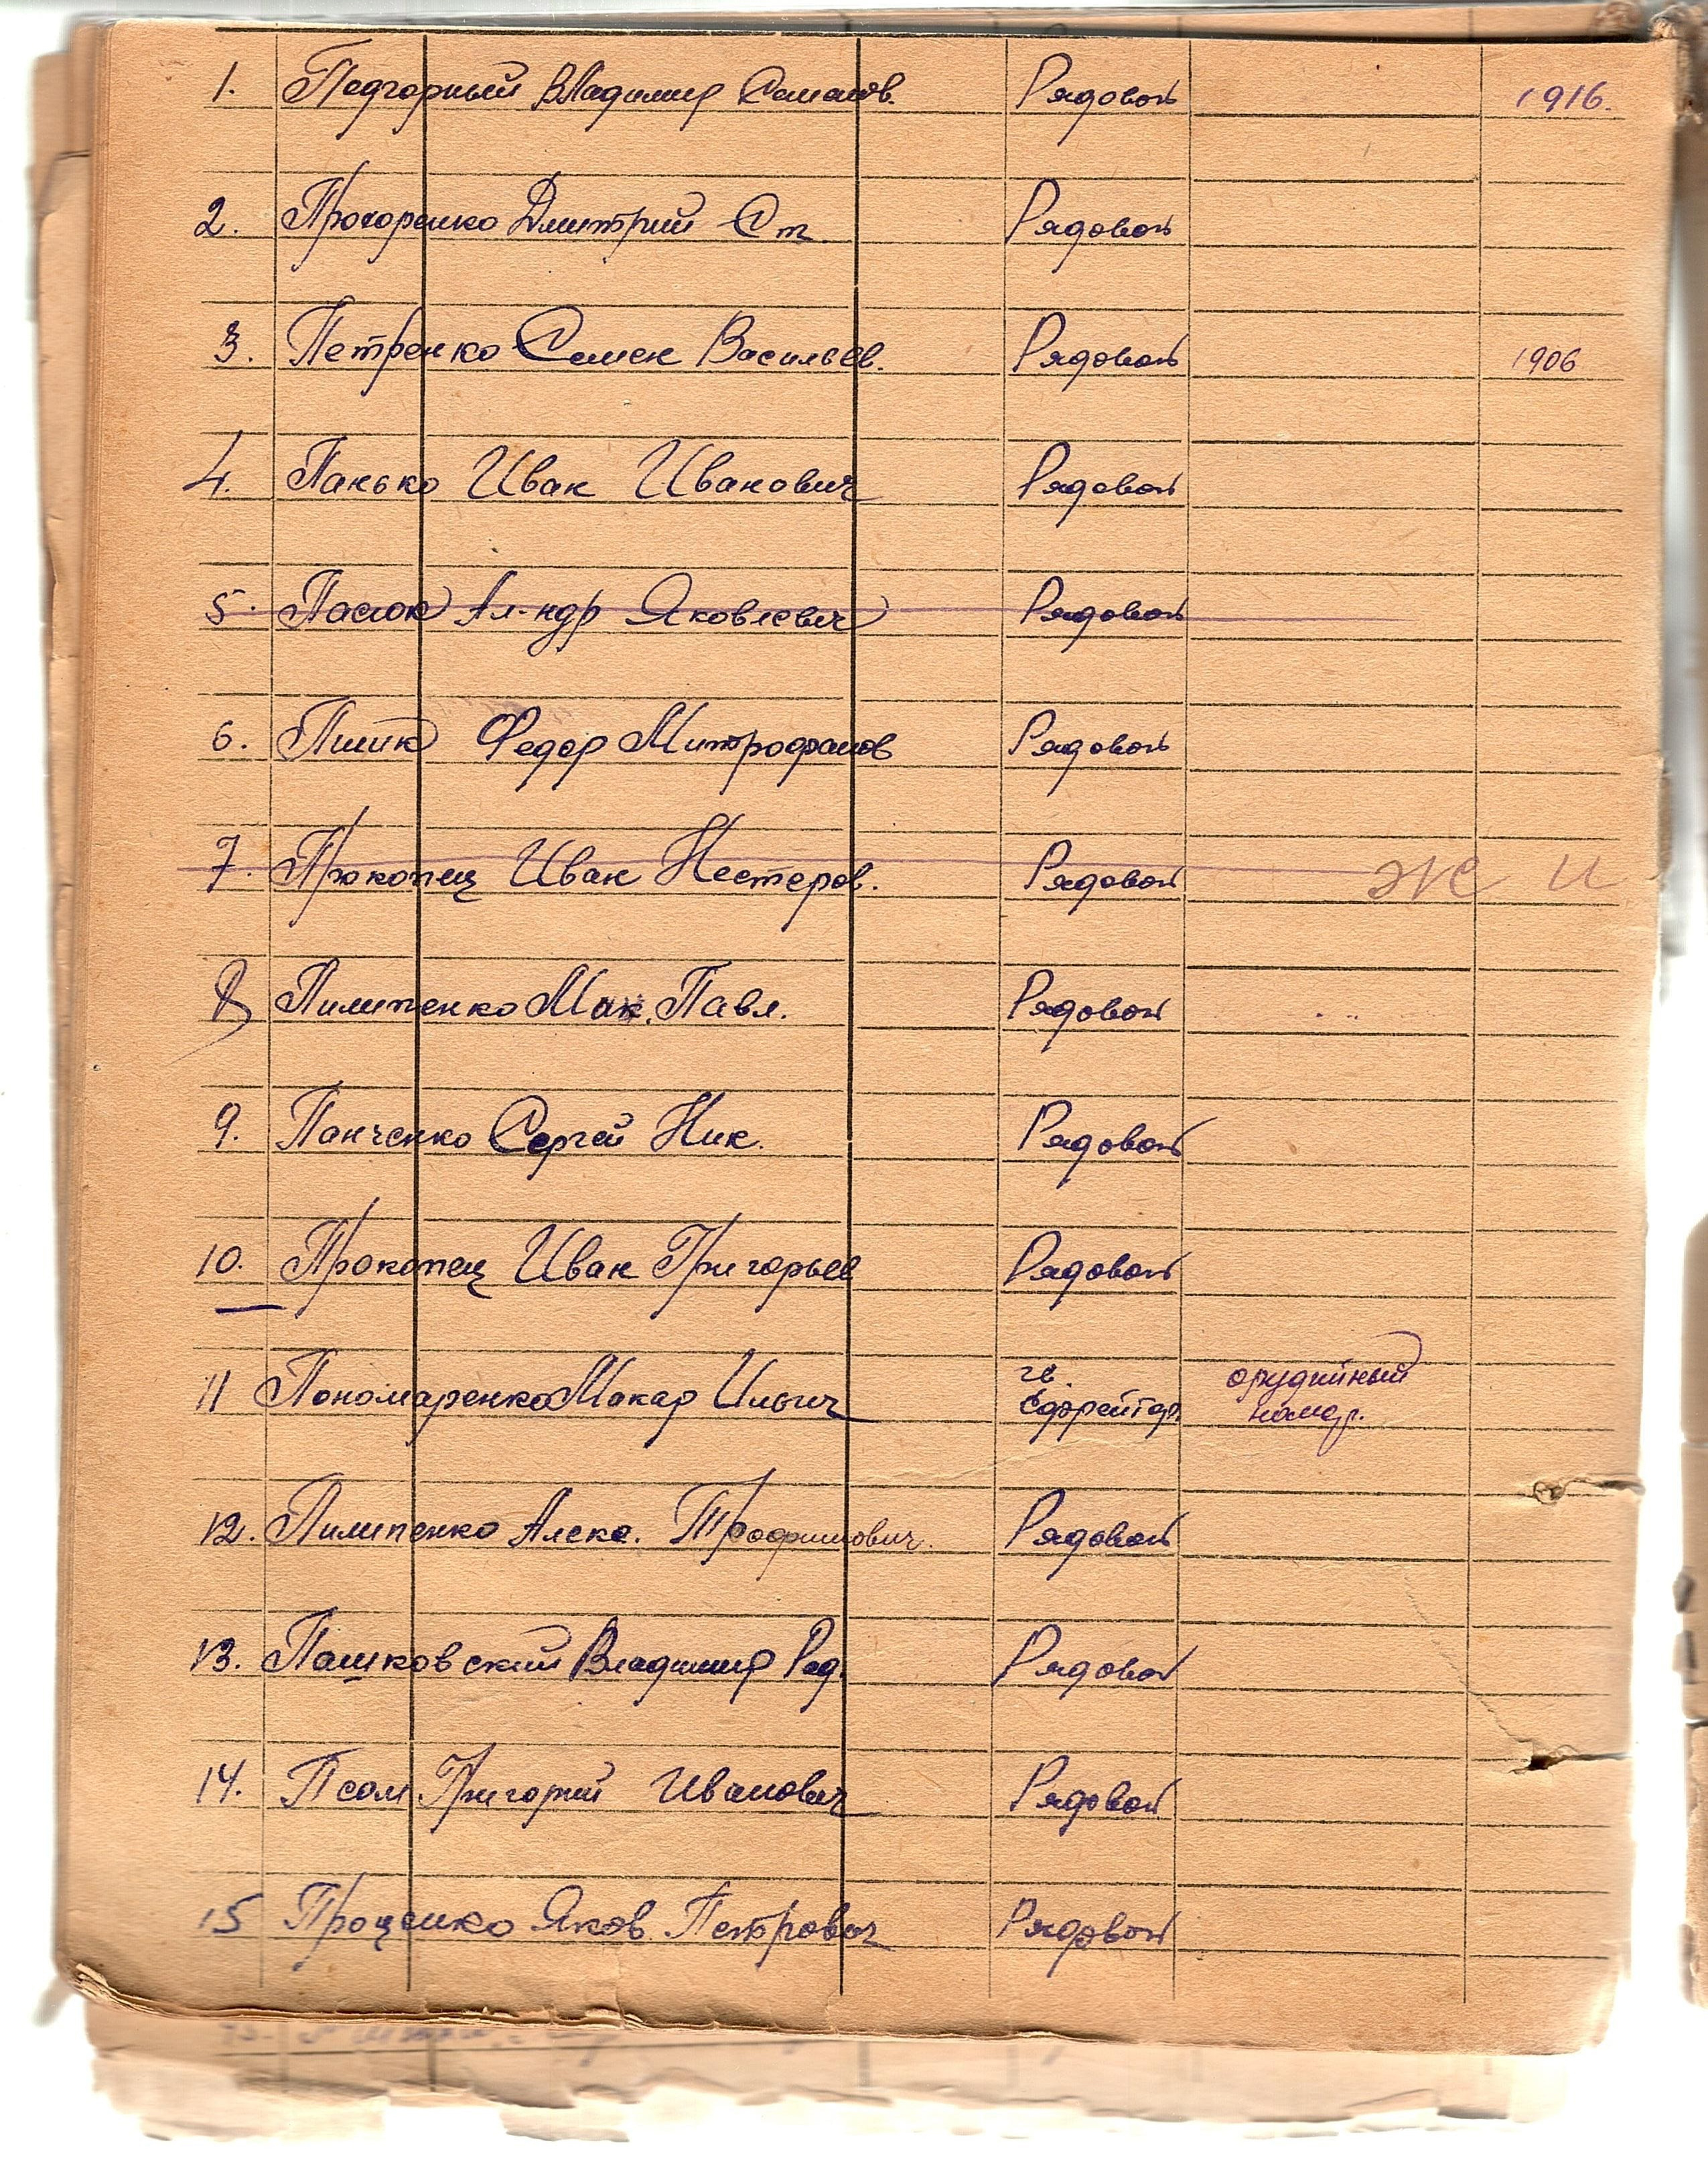 1. Подгорный Владимир Семенов. Рядовой 1916.
2. Прохоренко Дмитрий Ст. Рядовой
3. Петренко Семен Васильев. Рядовой 1906
4. Панько Иван Иванович Рядовой
5. Пасюк Ал-ндр Яковлевич Рядовой
6. Пшик Федор Митрофанов Рядовой
7. Прокопец Иван Нестеров. Рядовой
8 Пилипенко Мак. Павл. Рядовой
9. Панченко Сергей Ник. Рядовой
10. Прокопец Иван Григорьев Рядовой
11 Пономаренко Макар Ильич гв. Ефрейтор. орудийный
номер.
12. Пилипенко Алекс. Трофимович. Рядовой
13. Пашковский Владимир Рядовой
14. Псом Григорий Иванович Рядовой
15 Проценко Яков Петрович Рядовой